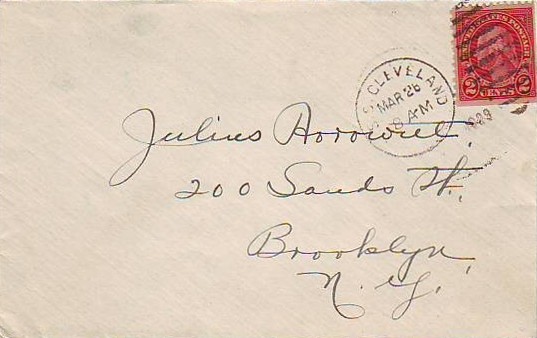 UNITED STATES POSTAGE
2 CENTS 2
CLEVELAND
MAR 26
8 A-M
1929
Julius
200 Sands St.,
Brooklyn,
N. Y.